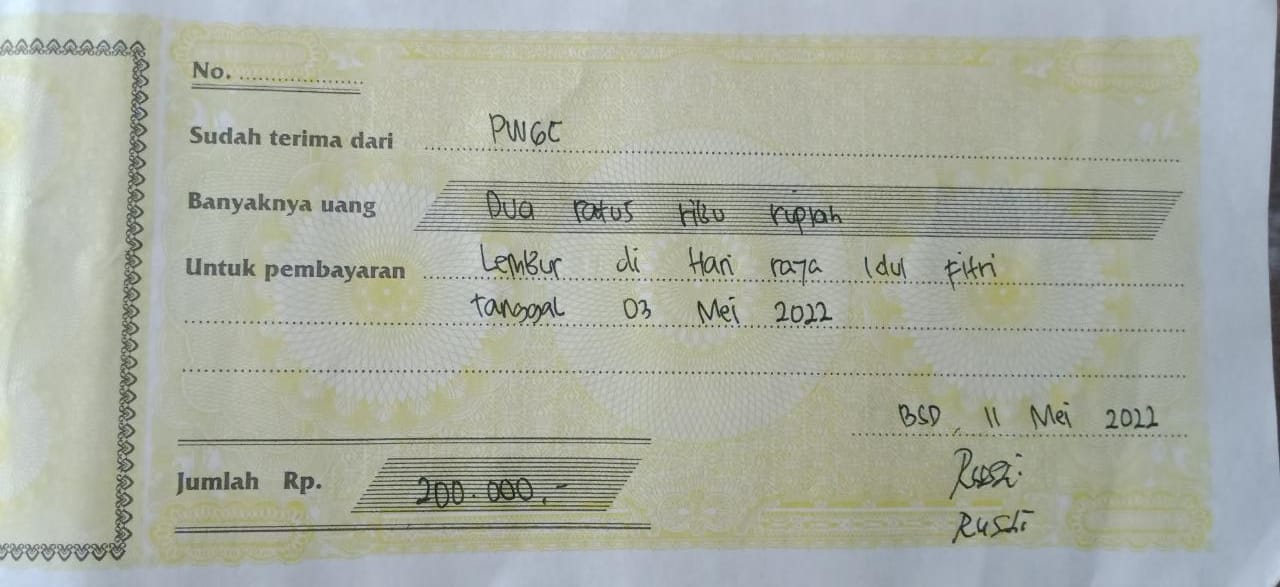 No. ....................
Sudah terima dari PWGC
Banyaknya uang Dua ratus ribu rupiah
Untuk pembayaran Lembur di Hari raya Idul Fitri
tanggal 03 Mei 2022
BSD, 11 Mei 2022
Jumlah Rp. 200.000,-